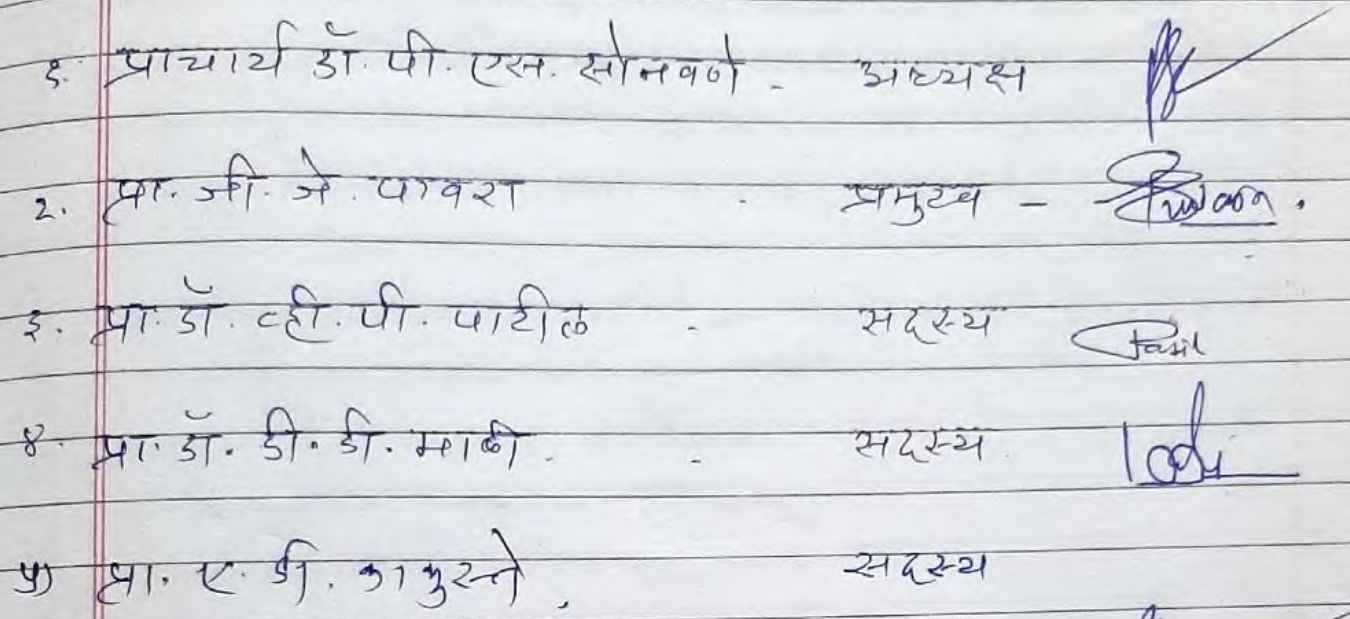 १. प्राचार्य डॉ. पी. एस. सोनवणे - अध्यक्ष
२. प्रा. जी. जे. पावरा - प्रमुख -
३. प्रा. डॉ. व्ही. पी. पाटील - सदस्य
४. प्रा. डॉ. डी. डी. माळी - सदस्य
५) प्रा. ए. डी. सदस्य